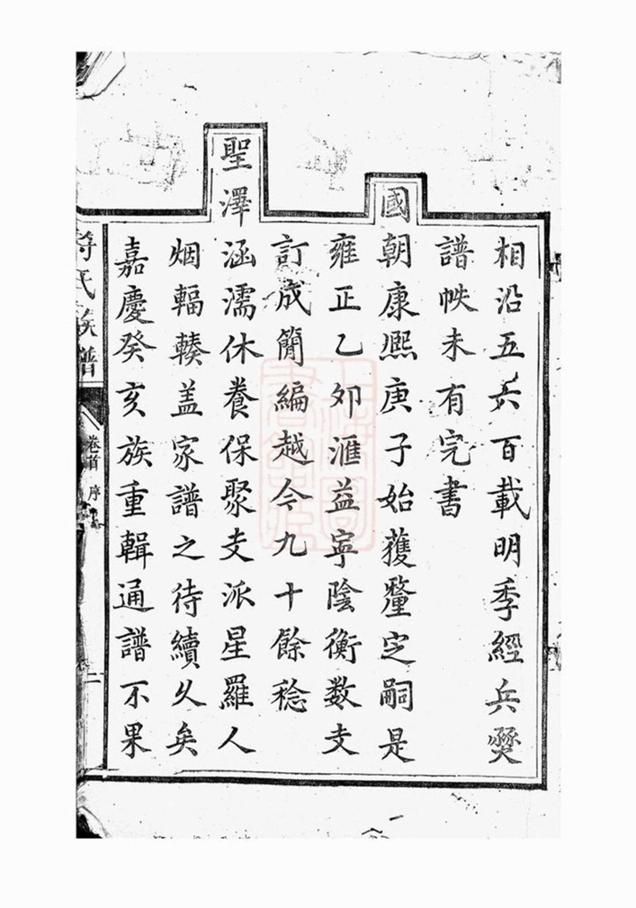 相沿五六百載明季經兵燹
譜帙未有完書
國朝康熙庚子始獲釐定嗣是
雍正乙夘滙益寧陰衡數支
訂成簡編越今九十餘稔
聖澤涵濡休養保聚支派星羅人
烟輻輳盖家譜之待續久矣
嘉慶癸亥族重輯通譜不果
氏族譜
卷首
序
二